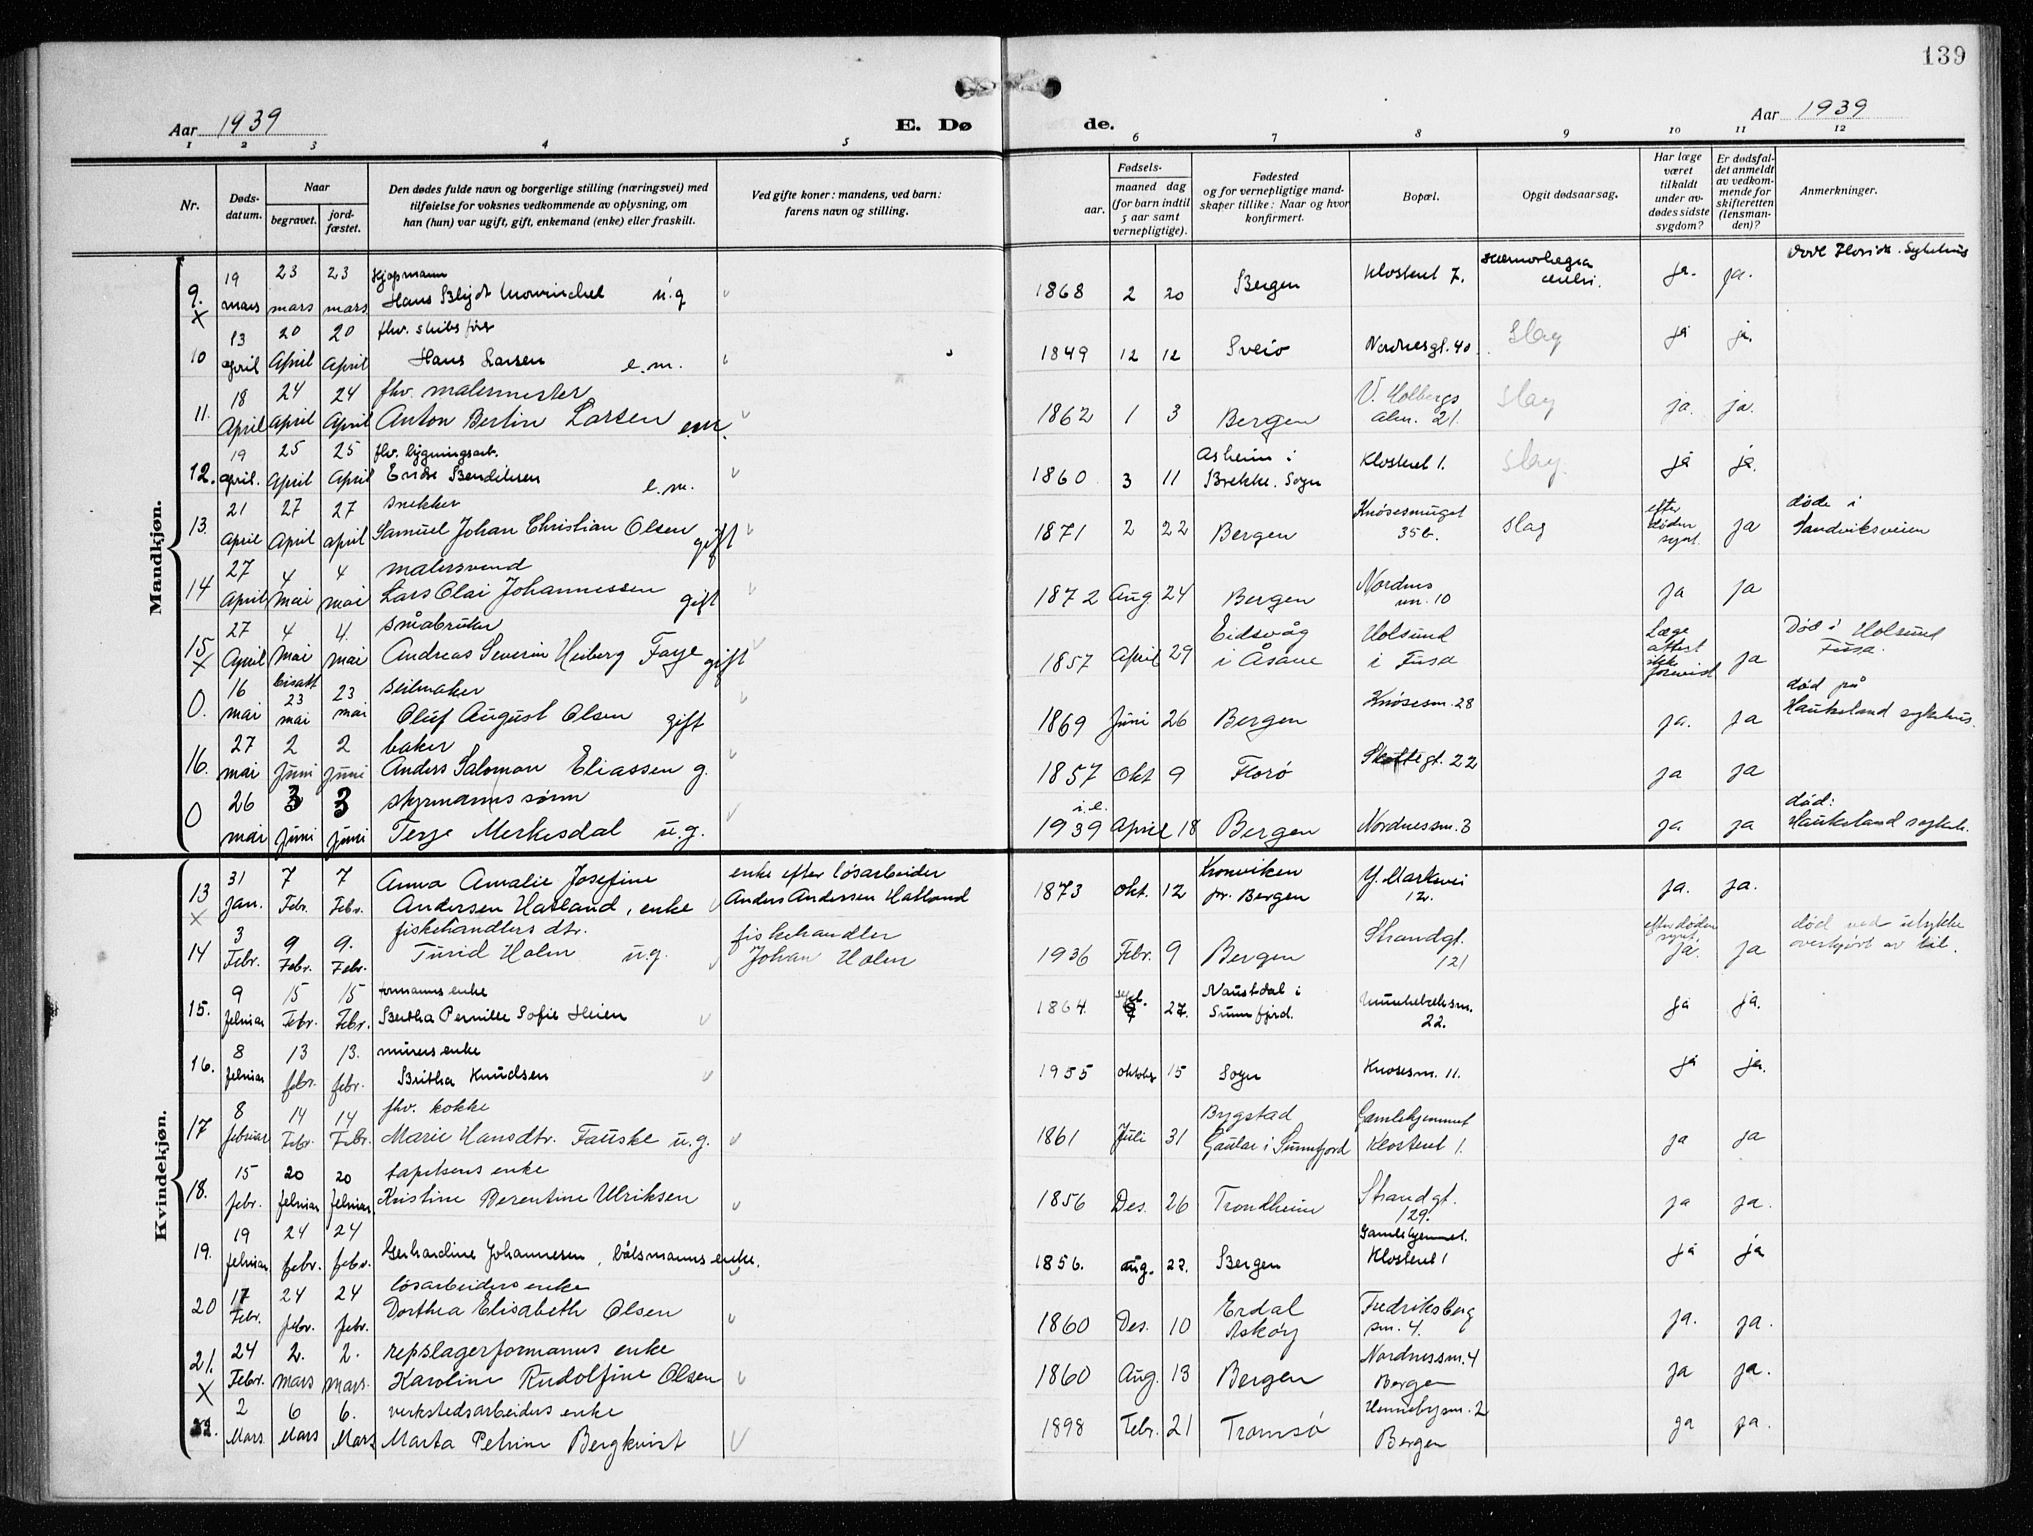 139
Aar 1939
E. Dø
de.
Aar 1939
1 2 3 4 5 6 7 8 9 10 11 12
Nr.
Døds-
datum.
Naar
begravet.
jord-
fæstet.
Den dødes fulde navn og borgerlige stilling (næringsvei) med
tilføielse for voksnes vedkommende av oplysning, om
han (hun) var ugift, gift, enkemand (enke) eller fraskilt.
Ved gifte koner: mandens, ved barn:
farens navn og stilling.
Fødsels-
aar.
maaned dag
(for barn indtil
5 aar samt
vernepligtige).
Fødested
og for vernepligtige mand-
skaper tillike: Naar og hvor
konfirmert.
Bopæl.
Opgit dødsaarsag.
Har læge
været
tilkaldt
under av-
dødes sidste
sygdom?
Er dødsfal-
det anmeldt
av vedkom-
mende for
skifteretten
(lensman-
den)?
Anmerkninger.
Mandkjøn.
9. x 19 mars 23 mars 23 mars Kjøpmann
Hans Blydt u.g
1868 2 20 Bergen Klosteret 7. ja. ja.
10 13 april 20 April 20 April fhv. skibsfører
Hans Larsen e.m.
1849 12 12 Sveio Nordnesgt. 40. Slag ja ja.
11. 18 April 24 April 24 April fhv. malermester
Anton Bertin Larsen em.
1862 1 3 Bergen V. Holbergs
alm. 21. Slag ja. ja.
12. 19 april. 25 April 25 April fhv. bygningsarb.
Endre Bendiksen e.m.
1860 3 11 Asheim i
Brekke. Sogn Klosteret 1. Slag. ja ja.
13. 21 April 27 April 27 april snekker
Samuel Johan Christian Olsen gift
1871 2 22 Bergen Knøsesmuget
35b. Slag efter
døden
synt. ja døde i
Sandviksveien
14 27 April 4 mai 4 mai malersvend
Lars Olai Johannessen gift
1872 Aug 24 Bergen Nordnes
10 ja ja
15 x 27 April 4 Mai 4. mai småbruker
Andreas Severin Heiberg Faye gift
1857 April 29 Eidsvåg
i Åsane Holsund
i Fusa Læge
attest
ikke
forevist ja Død i Holsund
Fusa.
0. 16 mai bisatt 23 mai 23 mai seilmaker
Oluf August Olsen gift
1869 Juni 26 Bergen Knøsesm. 28 ja. ja død på
Haukeland sykehus.
16. 27 mai 2 Juni 2 juni baker
Anders Salomon Eliassen g.
1857 Okt 9 Florø Skottegt. 22 ja ja
0 26 mai 3 Juni 3 juni styrmanns sønn
Terje Merkesdal u.g.
i.e.
1939 April 18 Bergen Nordnessm. 3 ja ja død:
Haukeland sykeh.
Kvindekjøn.
13 x 31 Jan. 7 Febr. 7 Febr. Anna Amalie Josefine
Andersen Hatland, enke enke efter løsarbeider
Anders Andersen Hatland
1873 Okt. 12 Kronviken
pr. Bergen Y. Markevei
12. ja. ja.
14 3 Febr. 9 Febr. 9. Febr. fiskehandlers dtr.
Turid Holm u.g. fiskehandler
Johan Holm
1936 Febr. 9 Bergen Strandgt.
121 efter døden
synt.
Ja. ja død ved ulykke
overkjørt av bil.
15. 9 februar 15 Febr. 15 Febr. formanns enke
Bertha Pernille Sofie Heien
1864. sept. 27. Naustdal i
Sunnfjord. Munkebeksm.
22. ja ja.
16. 8 februar 13 febr. 13. febr. murers enke
Britha Knudsen
1955 oktober 15 Sogn Knosesm. 11. ja ja.
17 8 februar 14 Febr. 14 Febr. fhv. kokke
Marie Hansdtr. Fauske u.g.
1861 Juli 31 Bygstad
Gaular i Sunnfjord Gamlehjemmet
Klosteret 1. ja ja
18. 15 febr. 20 februar 20 februar tapetsers enke
Kristine Berentine Ulriksen
1856 Des. 26 Trondheim Strandgt.
129. ja ja.
19. 19 februar 24 febr. 24 febr. Gerhardine Johannesen, båtsmanns enke.
1856. aug. 22. Bergen Gamlehjemmet.
Klosteret 1 ja ja
20 17 Febr. 24 febr. 24 febr. løsarbeiders enke
Dorthea Elisabeth Olsen
1860 Des. 10 Erdal
Askøy Fredriksberg
sm. 4. ja. ja.
21. x 24 Febr. 2. mars 2. mars. repslagerformanns enke
Karoline Rudolfine Olsen
1860 Aug. 13 Bergen Nordnessm. 4
Bergen ja ja.
22. 2 Mars 6 Mars 6. Mars verkstedsarbeiders enke
Marta Petrine Bergkvist
1898 Febr. 21 Tromsø Hennebysm. 2
Bergen ja ja.